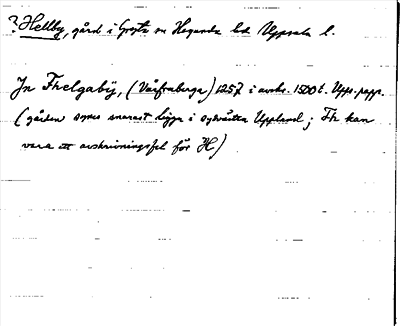 ? Hellby, gård i Gryta sn Hagunda hd Uppsala l.
In Thelgaby, (Vårfruberga) 1257 i avskr. 1500 t. Upps. papp.
(gården synes snarast ligga i sydvästra Uppland; Th kan
vara ett avskrivningsfel för H)